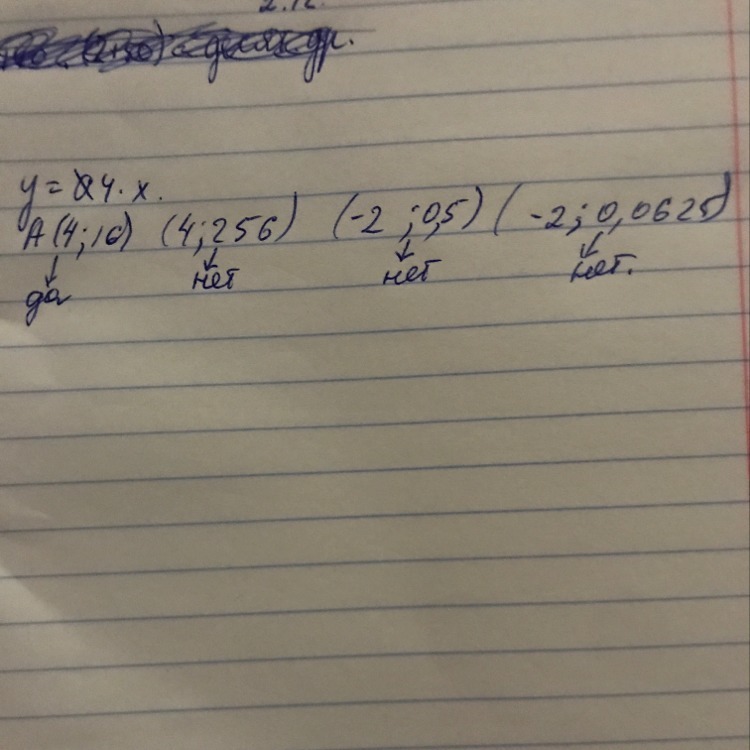 2.12.
y = 4 · x.
A (4; 16) (4; 256) (-2 ; 0,5) ( -2; 0,0625)
да нет нет нет.